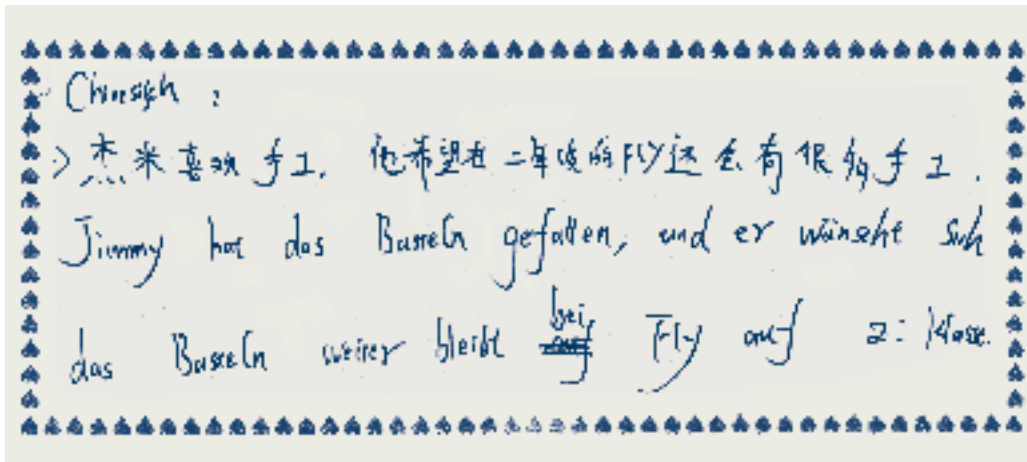 Chinesisch :
> 杰米喜欢手工. 他希望在二年级的FLY还会有很多手工.
Jimmy hat das Basteln gefallen, und er wünscht sich
das Basteln weiter bleibt bei Fly auf 2. Klasse.